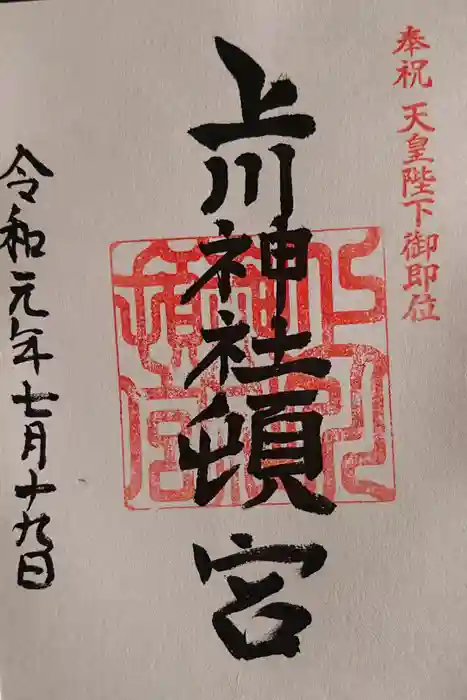 奉祝 天皇陛下御即位
上川神社頓宮
令和元年七月十九日